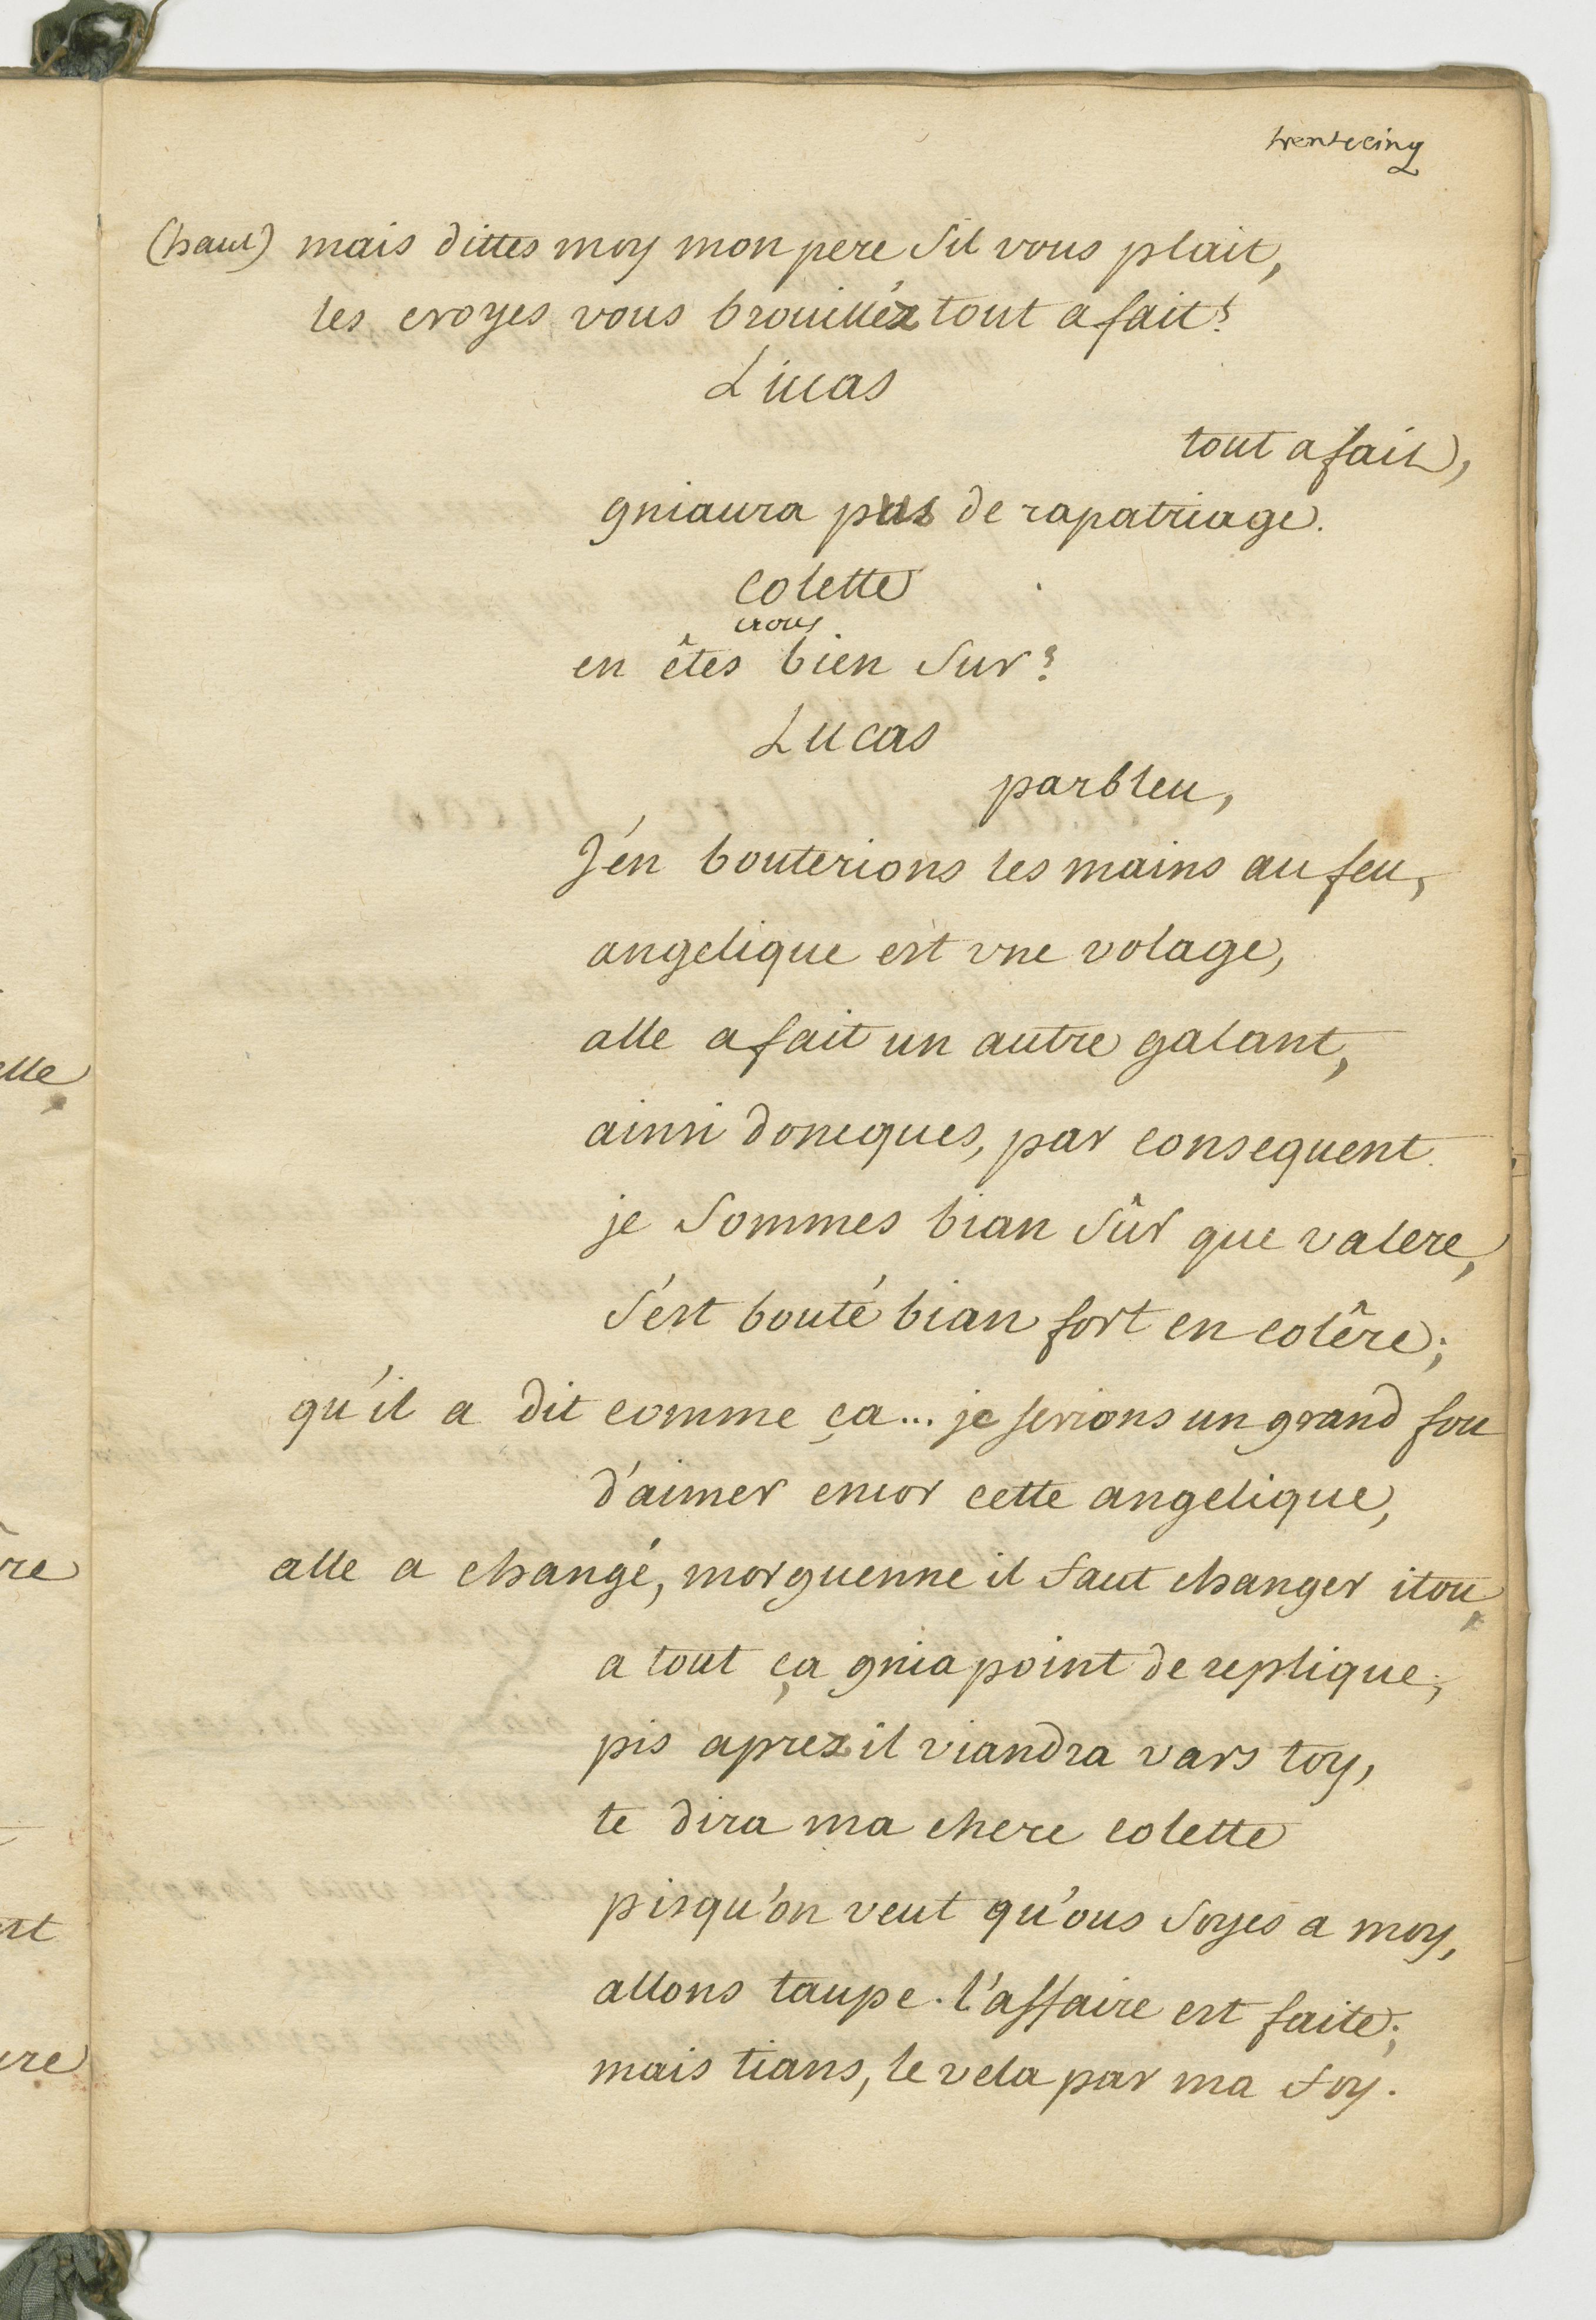 trente cinq
(haut) mais dittes moy mon pere s'il vous plait,
les croyes vous brouilléz tout a fait?
Lucas
tout a fait,
gniaura pas de rapatriage.
Colette
vous
en êtes bien sur?
Lucas
parbleu,
J'én bouterions les mains au feu,
angelique est vne volage,
alle a fait un autre galant,
ainsi doncques, par consequent
je sommes bian sûr que valere,
s'ést bouté bian fort en colêre;
qu'il a dit comme ça... je serions un grand fou
d'aimer encor cette angelique,
alle a changé, morguenne il faut changer itou,
a tout ça gnia point de replique;
pis aprez il viandra vars toy,
te dira ma chere colette
pisqu'on veut qu'ous soyes a moy,
allons taupe. l'affaire est faite;
mais tians, le vela par ma foy.
elle
re
st
ire